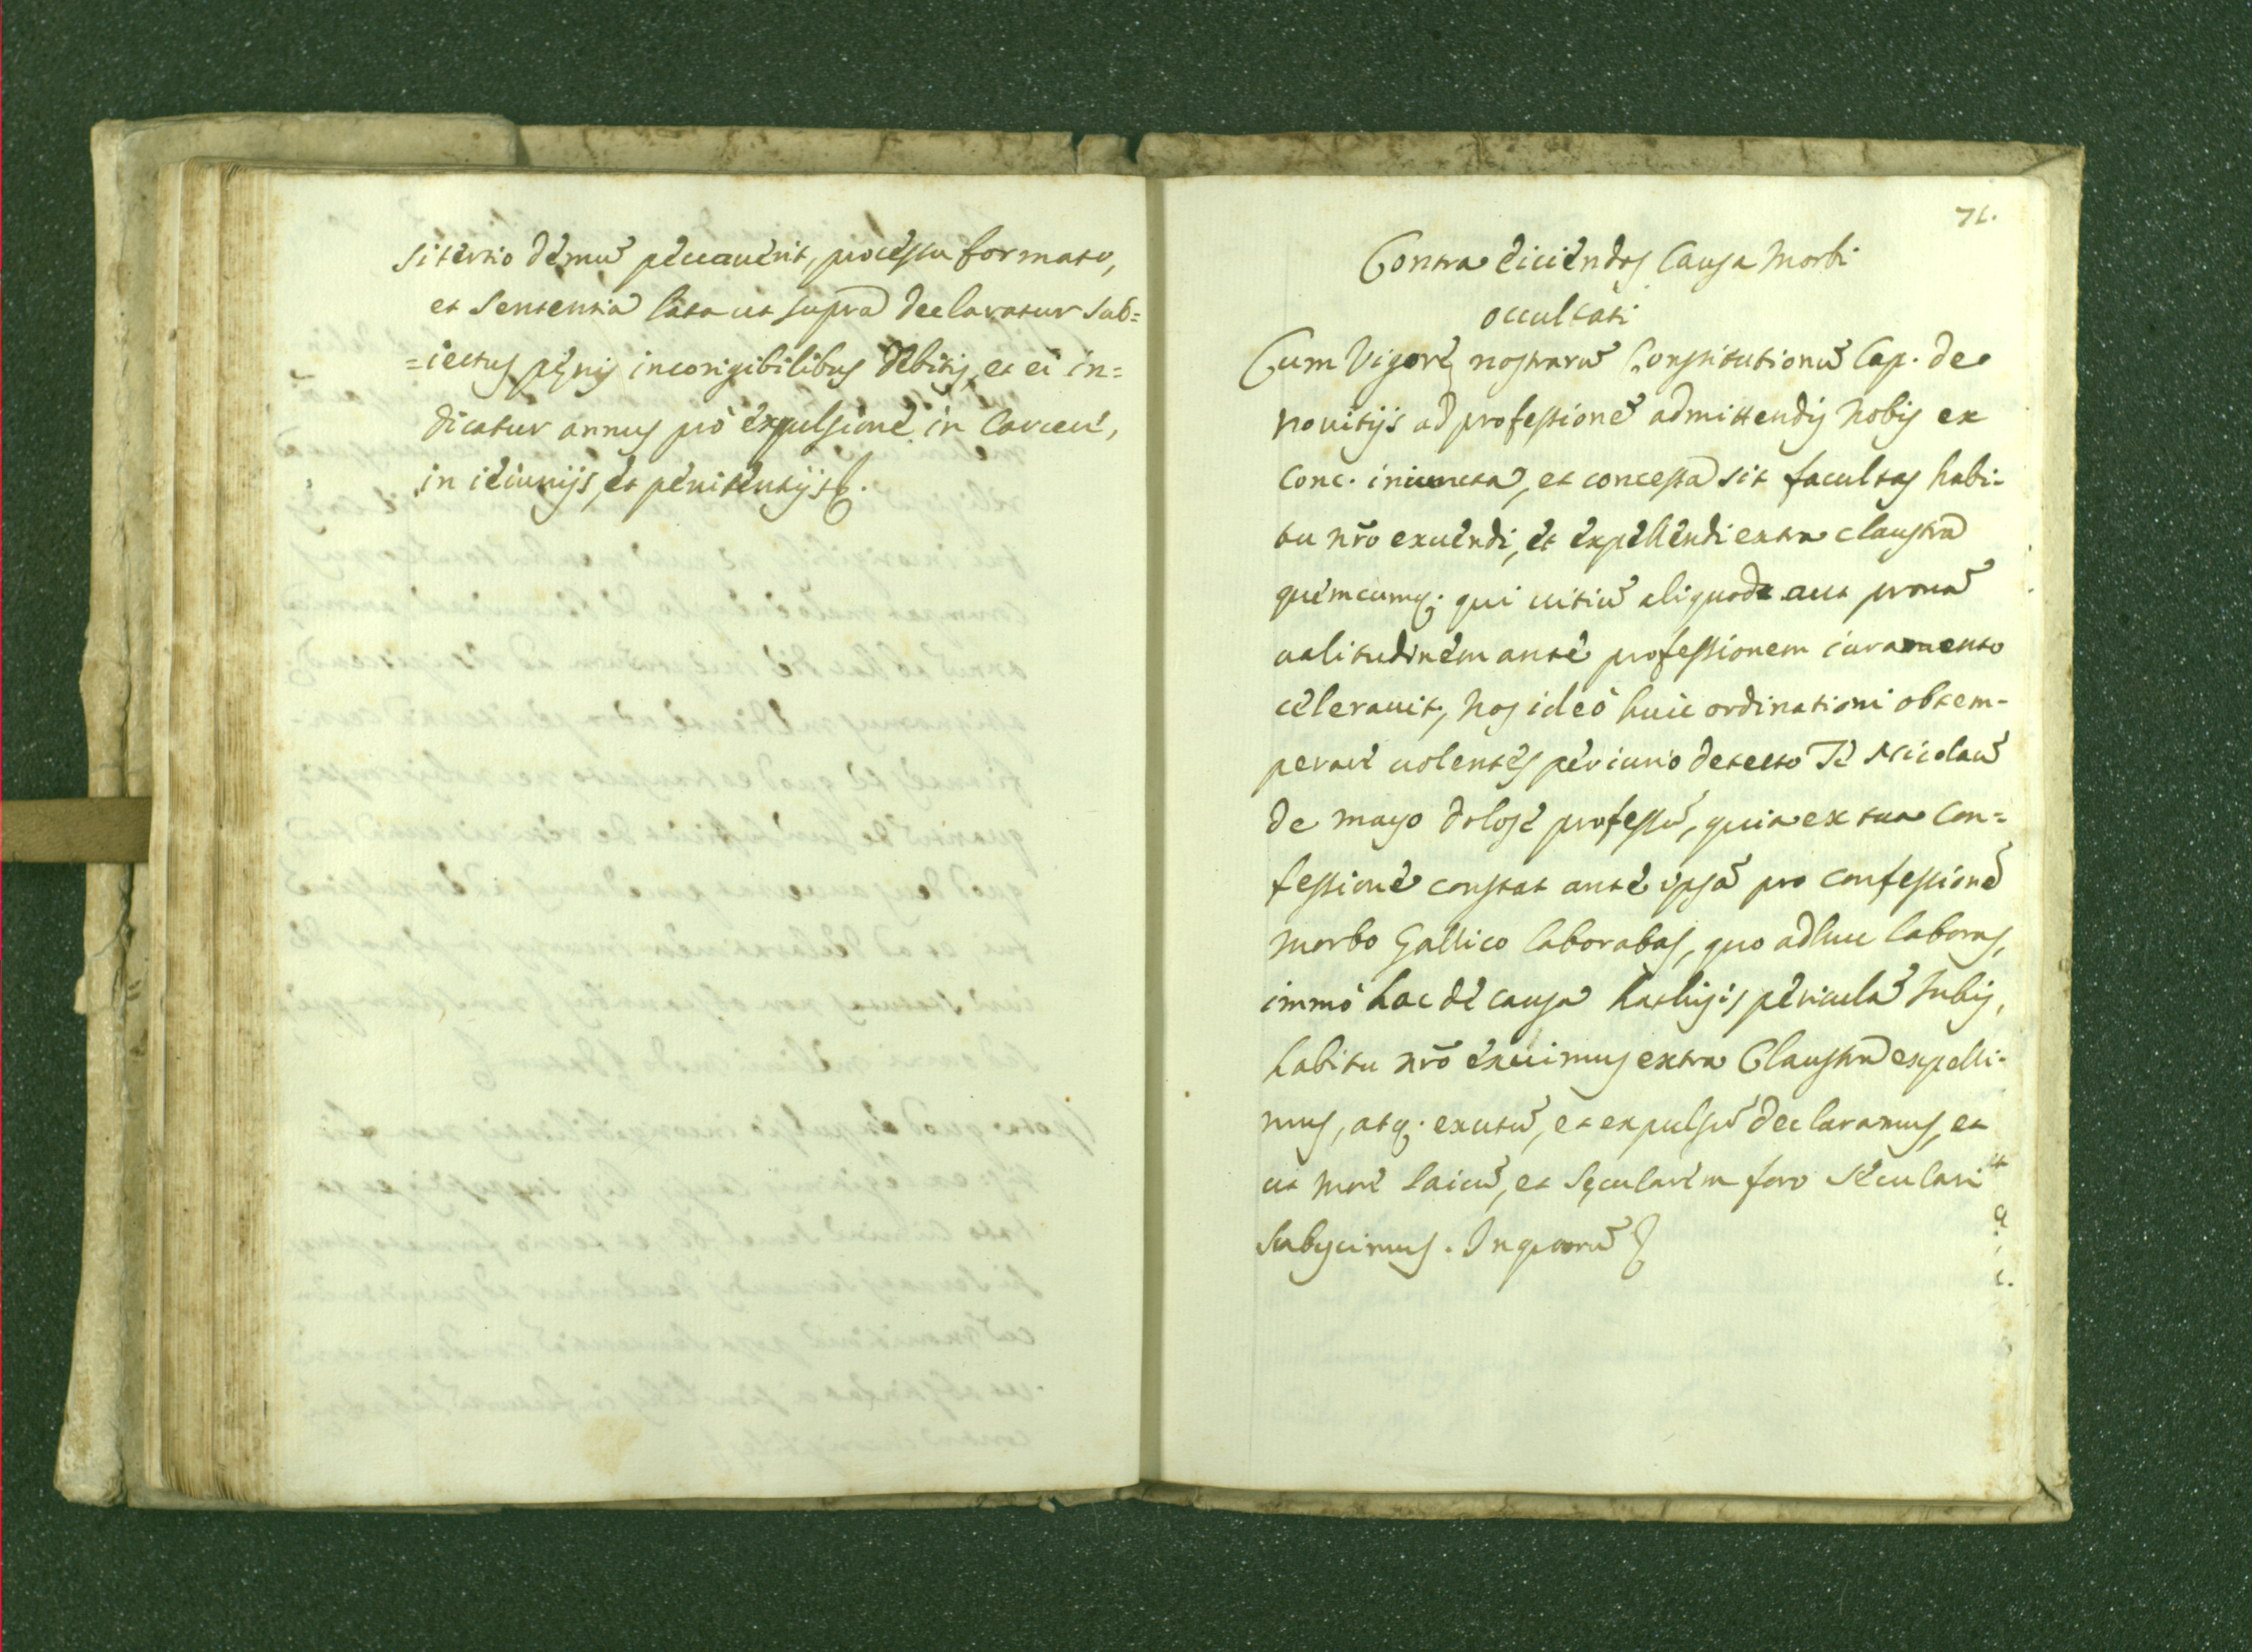 si tertio demũ peccauerit, processu formato,
et sententia lata ut supra declaratur sub=
=iectus pęnis incorrigibilibus debitis, et ei in=
dicatur annus pro expulsione in carcere,
in ieiunijs, et penitentijs &.
71.
Contra eiiciendos causa morbi
occultati
Cum vigore nostrarũ Constitutionũ Cap. de
nouitijs ad professionẽ admittendis nobis ex
conc. iniuncta, et concessa sit facultas habi-
tu nr̃o exuendi, et expellendi extra claustra
quemcumq; qui uitiũ aliquod aut prauã
ualitudinem ante professionem iuramento
celerauit, nos ideo huic ordinationi obtem-
perare uolentes periurio detecto Te Nicolaũ
de mayo dolose professũ, quia ex tua con=
fessione constat ante ipsã pro confessionẽ
morbo Gallico laborabas, quo adhuc laboras,
immò hac de causa periculã subis,
habitu nr̃o exuimus extra Claustra expelli-
mus, atq; exutũ, et expulsũ declaramus, et
ut merẽ laicũ, et sęcularem foro seculari
subycimus. In quorũ &